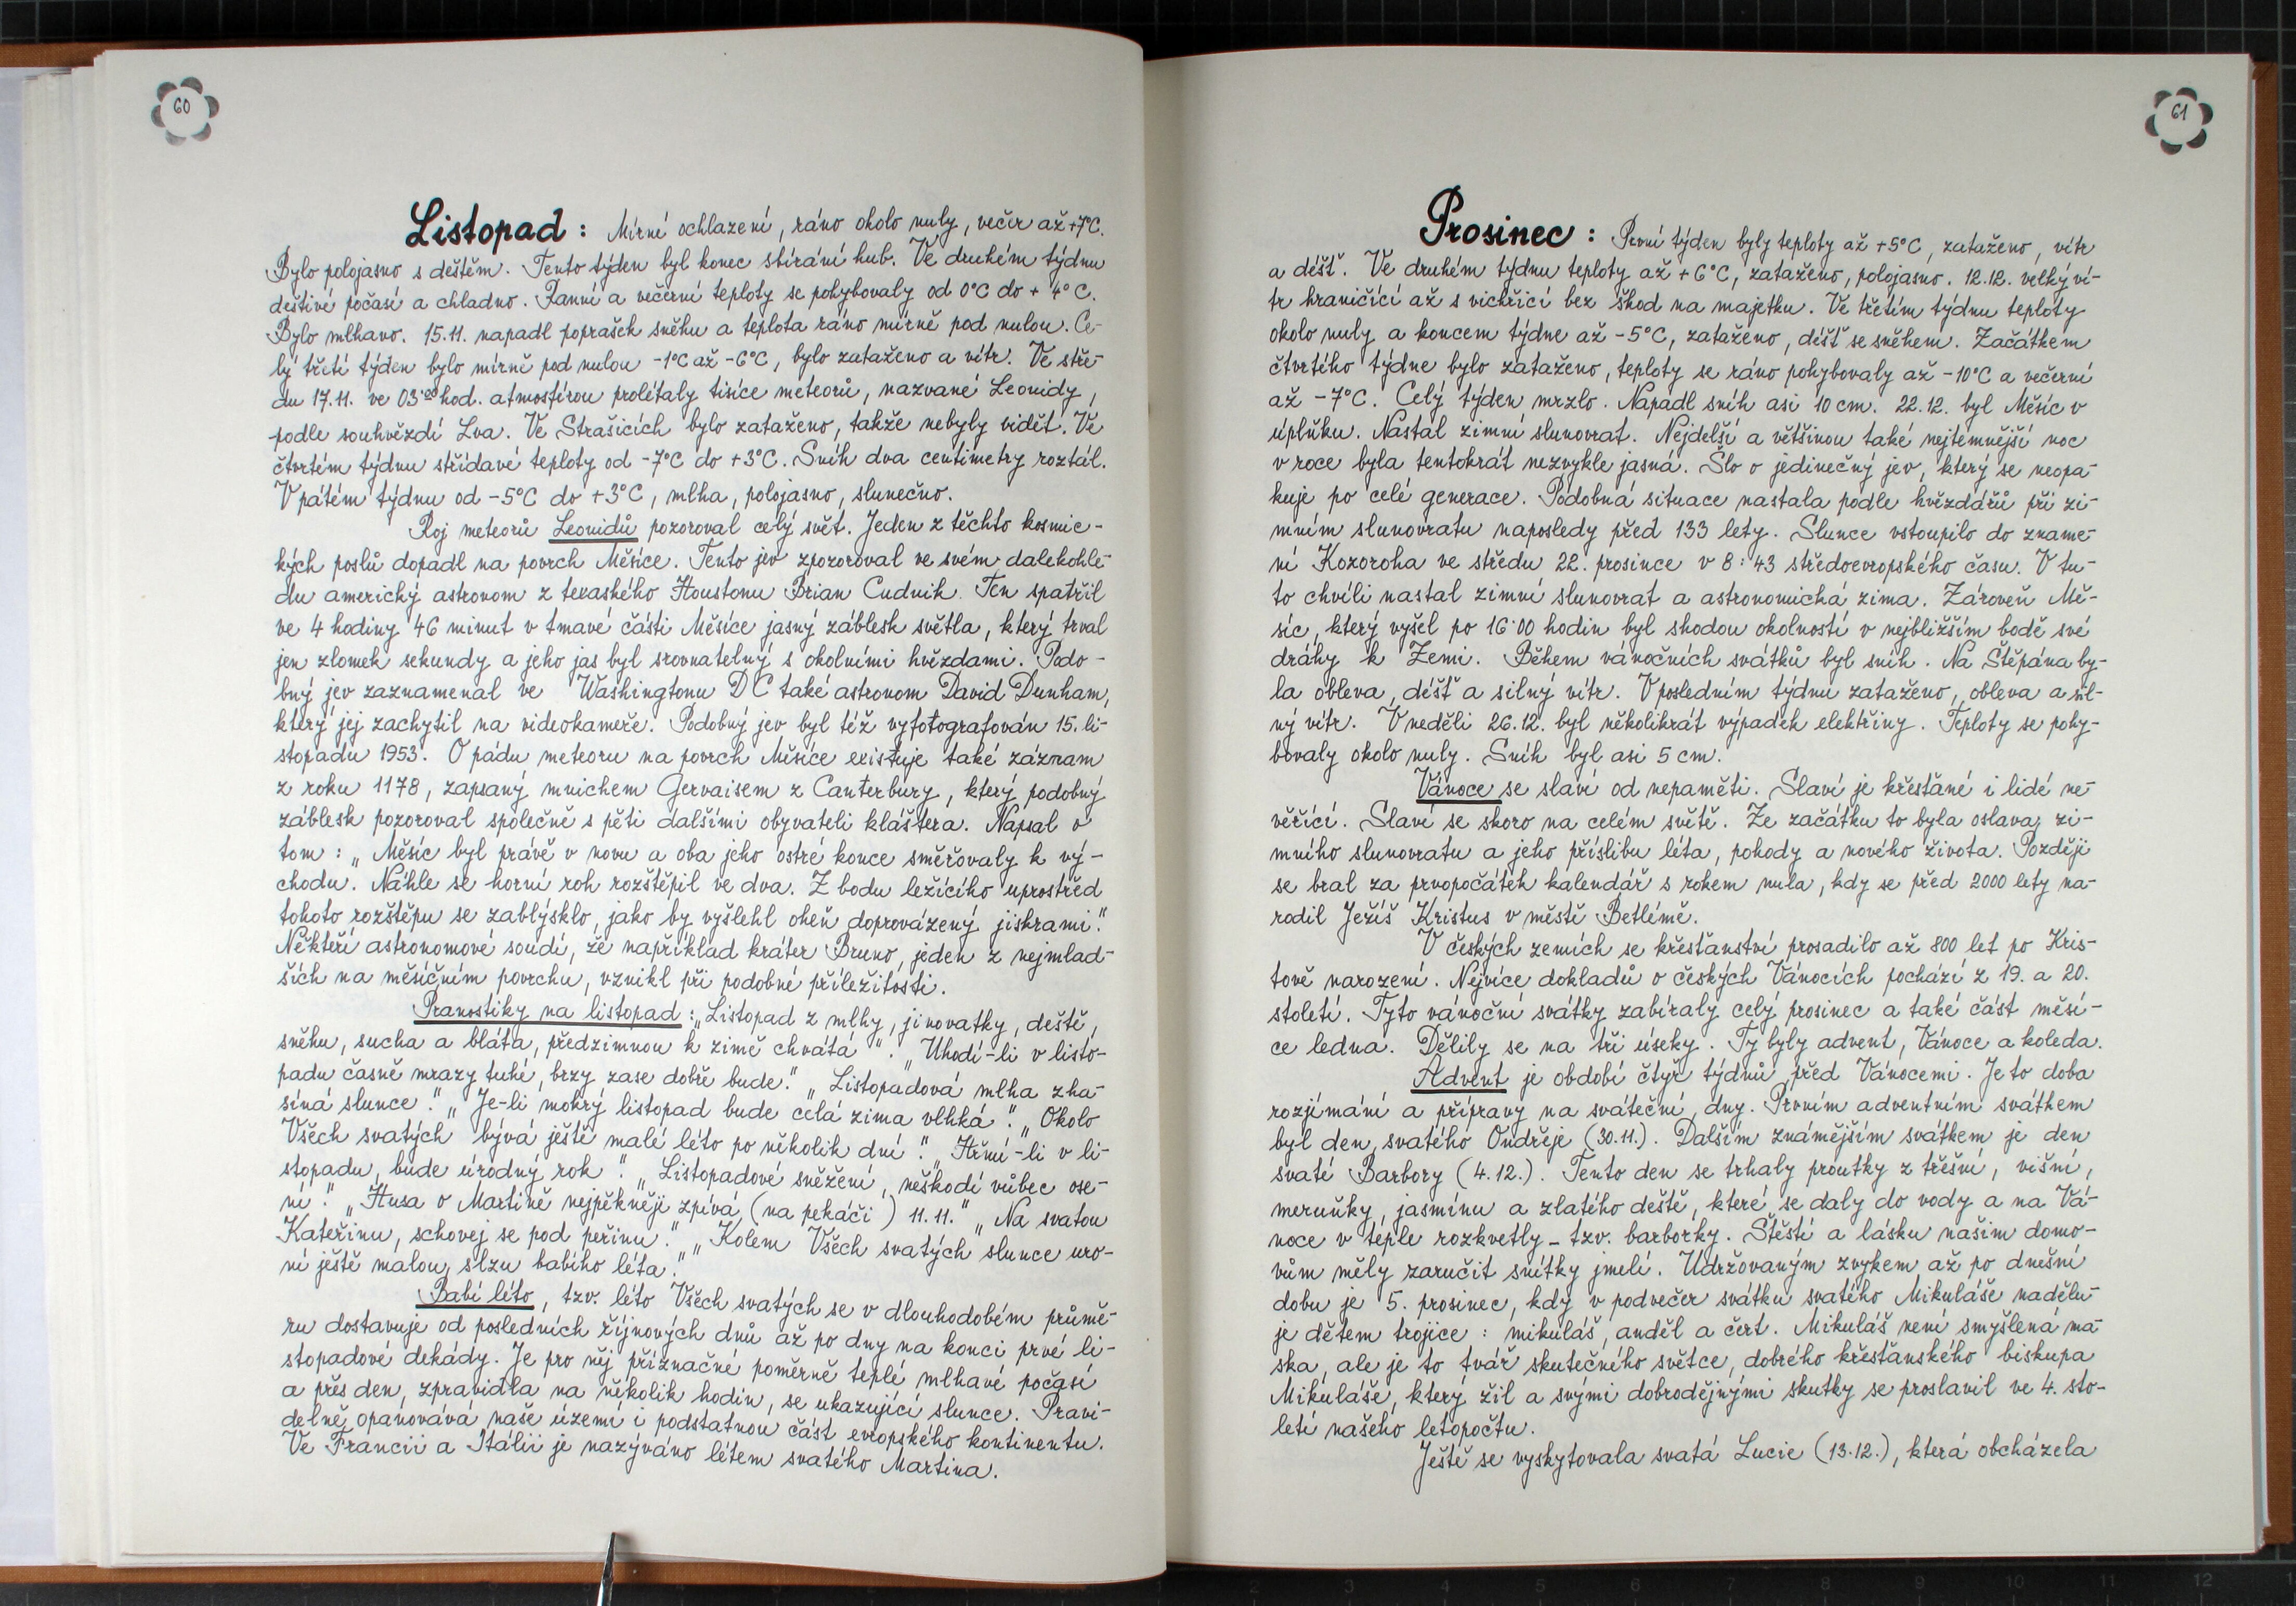 60
Listopad : Mírné ochlazení, ráno okolo nuly, večer až +7°C.
Bylo polojasno s deštěm. Tento týden byl konec sbírání hub. Ve druhém týdnu
deštivé počasí a chladno. Ranní a večerní teploty se pohybovaly od 0°C do + 4°C.
Bylo mlhavo. 15.11. napadl poprašek sněhu a teplota ráno mírně pod nulou. Ce-
lý třetí týden bylo mírně pod nulou -1°C až -6°C, bylo zataženo a vítr. Ve stře-
du 17.11. ve 03:00 hod. atmosférou prolétaly tisíce meteorů, nazvané Leonidy,
podle souhvězdí Lva. Ve Strašicích bylo zataženo, takže nebyly vidět. Ve
čtvrtém týdnu střídavé teploty od -7°C do +3°C. Sníh dva centimetry roztál.
V pátém týdnu od -5°C do +3°C, mlha, polojasno, slunečno.
Roj meteorů Leonidů pozoroval celý svět. Jeden z těchto kosmic-
kých poslů dopadl na povrch Měsíce. Tento jev zpozoroval ve svém dalekohle-
du americký astronom z texaského Houstonu Brian Cudnik. Ten spatřil
ve 4 hodiny 46 minut v tmavé části Měsíce jasný záblesk světla, který trval
jen zlomek sekundy a jeho jas byl srovnatelný s okolními hvězdami. Podo-
bný jev zaznamenal ve Washingtonu DC také astronom David Dunham,
který jej zachytil na videokameře. Podobný jev byl též vyfotografován 15. li-
stopadu 1953. O pádu meteoru na povrch Měsíce existuje také záznam
z roku 1178, zapsaný mnichem Gervaisem z Canterbury, který podobný
záblesk pozoroval společně s pěti dalšími obyvateli kláštera. Napsal o
tom : „Měsíc byl právě v novu a oba jeho ostré konce směřovaly k vý-
chodu. Náhle se horní roh rozštěpil ve dva. Z bodu ležícího uprostřed
tohoto rozštěpu se zablýsklo, jako by vyšlehl oheň doprovázený jiskrami."
Někteří astronomové soudí, že například kráter Bruno, jeden z nejmlad-
ších na měsíčním povrchu, vznikl při podobné příležitosti.
Pranostiky na listopad : „Listopad z mlhy, jinovatky, deště,
sněhu, sucha a bláta, předzimnou k zimě chvátá". „Uhodí-li v listo-
padu časně mrazy tuhé, brzy zase dobře bude." „Listopadová mlha zha-
síná slunce." „Je-li mokrý listopad bude celá zima vlhká." „Okolo
Všech svatých bývá ještě malé léto po několik dní." „Hřmí-li v li-
stopadu, bude úrodný rok." „Listopadové sněžení, neškodí vůbec ose-
ní." „Husa o Martině nejpěkněji zpívá (na pekáči) 11.11." „Na svatou
Kateřinu, schovej se pod peřinu." „Kolem Všech svatých slunce uro-
ní ještě malou slzu babího léta."
Babí léto, tzv. léto Všech svatých se v dlouhodobém průmě-
ru dostavuje od posledních říjnových dnů až po dny na konci prvé li-
stopadové dekády. Je pro něj příznačné poměrně teplé mlhavé počasí
a přes den, zpravidla na několik hodin, se ukazující slunce. Pravi-
delně opanovává naše území i podstatnou část evropského kontinentu.
Ve Francii a Itálii je nazýváno létem svatého Martina.
61
Prosinec : První týden byly teploty až +5°C, zataženo, vítr
a déšť. Ve druhém týdnu teploty až +6°C, zataženo, polojasno. 12.12. velký ví-
tr hraničící až s vichřicí bez škod na majetku. Ve třetím týdnu teploty
okolo nuly a koncem týdne až -5°C, zataženo, déšť se sněhem. Začátkem
čtvrtého týdne bylo zataženo, teploty se ráno pohybovaly až -10°C a večerní
až -7°C. Celý týden mrzlo. Napadl sníh asi 10 cm. 22.12. byl Měsíc v
úplňku. Nastal zimní slunovrat. Nejdelší a většinou také nejtemnější noc
v roce byla tentokrát nezvykle jasná. Šlo o jedinečný jev, který se neopa-
kuje po celé generace. Podobná situace nastala podle hvězdářů při zi-
mním slunovratu naposledy před 133 lety. Slunce vstoupilo do zname-
ní Kozoroha ve středu 22. prosince v 8:43 středoevropského času. V tu-
to chvíli nastal zimní slunovrat a astronomická zima. Zároveň Mě-
síc, který vyšel po 16:00 hodin byl shodou okolností v nejbližším bodě své
dráhy k Zemi. Během vánočních svátků byl sníh. Na Štěpána by-
la obleva, déšť a silný vítr. V posledním týdnu zataženo, obleva a sil-
ný vítr. V neděli 26.12. byl několikrát výpadek elektřiny. Teploty se pohy-
bovaly okolo nuly. Sníh byl asi 5 cm.
Vánoce se slaví od nepaměti. Slaví je křesťané i lidé ne-
věřící. Slaví se skoro na celém světě. Ze začátku to byla oslava zi-
mního slunovratu a jeho příslibu léta, pohody a nového života. Později
se bral za prvopočátek kalendář s rokem nula, kdy se před 2000 lety na-
rodil Ježíš Kristus v městě Betlémě.
V českých zemích se křesťanství prosadilo až 800 let po Kris-
tově narození. Nejvíce dokladů o českých Vánocích pochází z 19. a 20.
století. Tyto vánoční svátky zabíraly celý prosinec a také část měsí-
ce ledna. Dělily se na tři úseky. Ty byly advent, Vánoce a koleda.
Advent je období čtyř týdnů před Vánocemi. Je to doba
rozjímání a přípravy na sváteční dny. Prvním adventním svátkem
byl den svatého Ondřeje (30.11.). Dalším známějším svátkem je den
svaté Barbory (4.12.). Tento den se trhaly proutky z třešní, višní,
meruňky, jasmínu a zlatého deště, které se daly do vody a na Vá-
noce v teple rozkvetly - tzv. barborky. Štěstí a lásku našim domo-
vům měly zaručit snítky jmelí. Udržovaným zvykem až po dnešní
dobu je 5. prosinec, kdy v podvečer svátku svatého Mikuláše nadělu-
je dětem trojice : mikuláš, anděl a čert. Mikuláš není smyšlená ma-
ska, ale je to tvář skutečného světce, dobrého křesťanského biskupa
Mikuláše, který žil a svými dobrodějnými skutky se proslavil ve 4. sto-
letí našeho letopočtu.
Ještě se vyskytovala svatá Lucie (13.12.), která obcházela